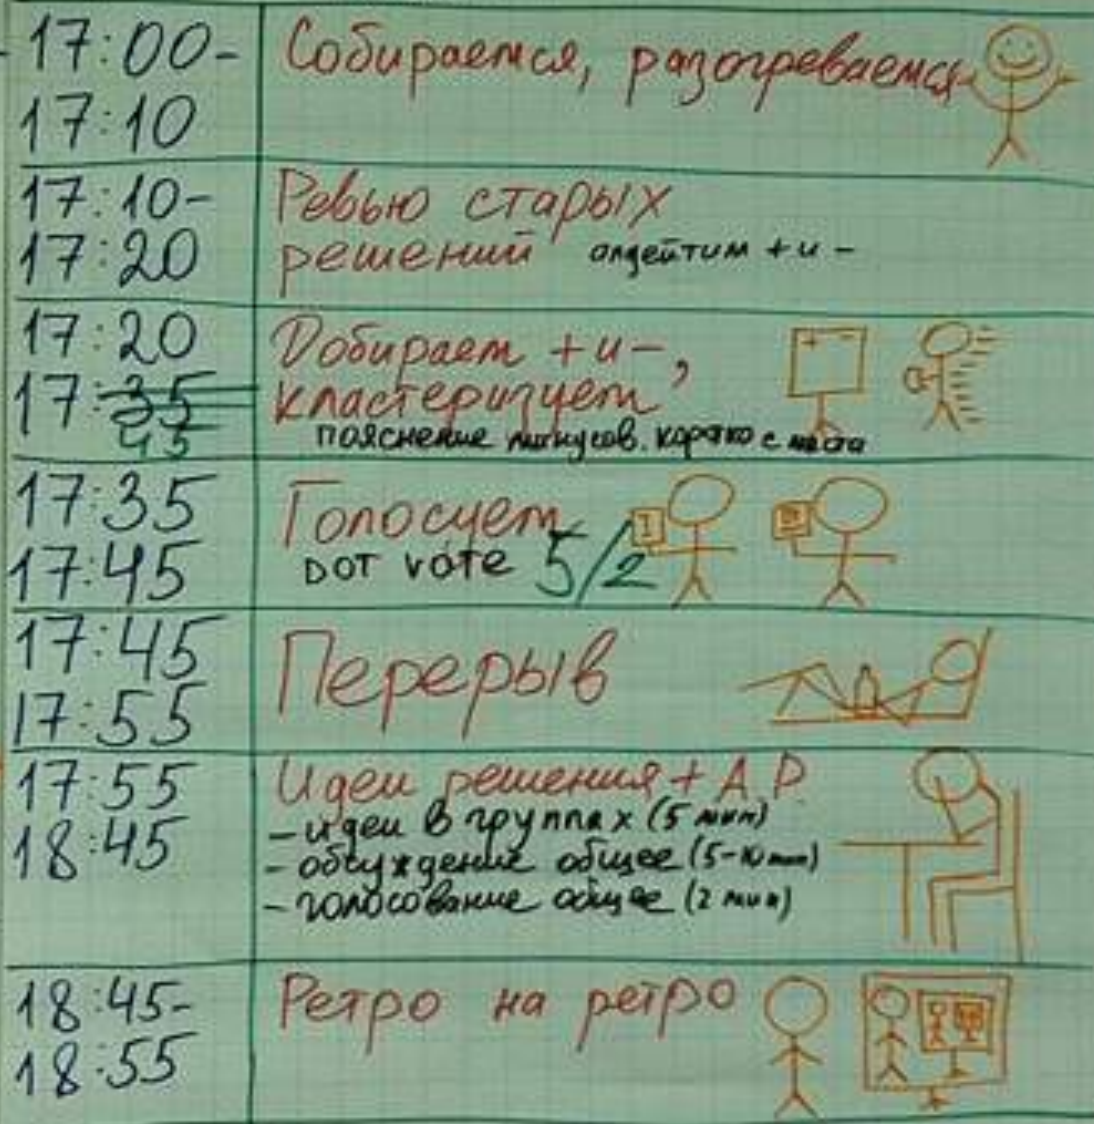 17:00-
17:10
Собираемся, разогреваемся
17:10-
17:20
Ревью старых
решений апдейтим + и -
17:20
17:35
45
Добираем + и -,
кластеризуем
пояснение минусов. коротко с места
17:35
17:45
Голосуем
DOT vote 5/2
17:45
17:55
Перерыв
17:55
18:45
Идеи решения + A P
- идеи в группах (5 мин)
- обсуждение общее (5-10 мин)
- голосование общее (2 мин)
18:45-
18:55
Ретро на ретро